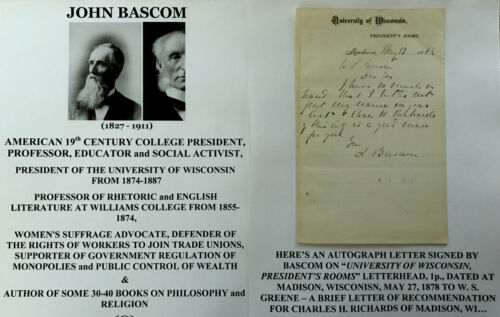 JOHN BASCOM
(1827 - 1911)
AMERICAN 19th CENTURY COLLEGE PRESIDENT,
PROFESSOR, EDUCATOR and SOCIAL ACTIVIST,
PRESIDENT OF THE UNIVERSITY OF WISCONSIN
FROM 1874-1887
PROFESSOR OF RHETORIC and ENGLISH
LITERATURE AT WILLIAMS COLLEGE FROM 1855-
1874,
WOMEN'S SUFFRAGE ADVOCATE, DEFENDER OF
THE RIGHTS OF WORKERS TO JOIN TRADE UNIONS,
SUPPORTER OF GOVERNMENT REGULATION OF
MONOPOLIES and PUBLIC CONTROL OF WEALTH
&
AUTHOR OF SOME 30-40 BOOKS ON PHILOSOPHY and
RELIGION
University of Wisconsin,
PRESIDENT'S ROOMS,
Madison, May 187
W. S. Greene
Dear Sir
I have so much in
hand that I
put my name in your
list. Chas. H. Richards
of this city is a good man
for you.
HERE'S AN AUTOGRAPH LETTER SIGNED BY
BASCOM ON "UNIVERSITY OF WISCONSIN,
PRESIDENT'S ROOMS" LETTERHEAD, 1p., DATED AT
MADISON, WISCONISN, MAY 27, 1878 TO W. S.
GREENE – A BRIEF LETTER OF RECOMMENDATION
FOR CHARLES H. RICHARDS OF MADISON, WI…